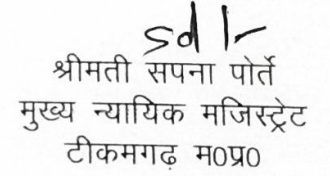 sd/-
श्रीमती सपना पोर्ते
मुख्य न्यायिक मजिस्ट्रेट
टीकमगढ़ म0प्र0